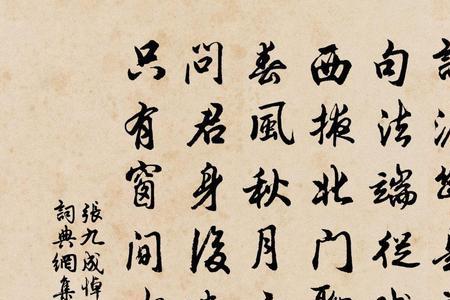 句法端從
西掖北門
春風秋月
問君身後
只有窗間
張九成悼
詞典網集